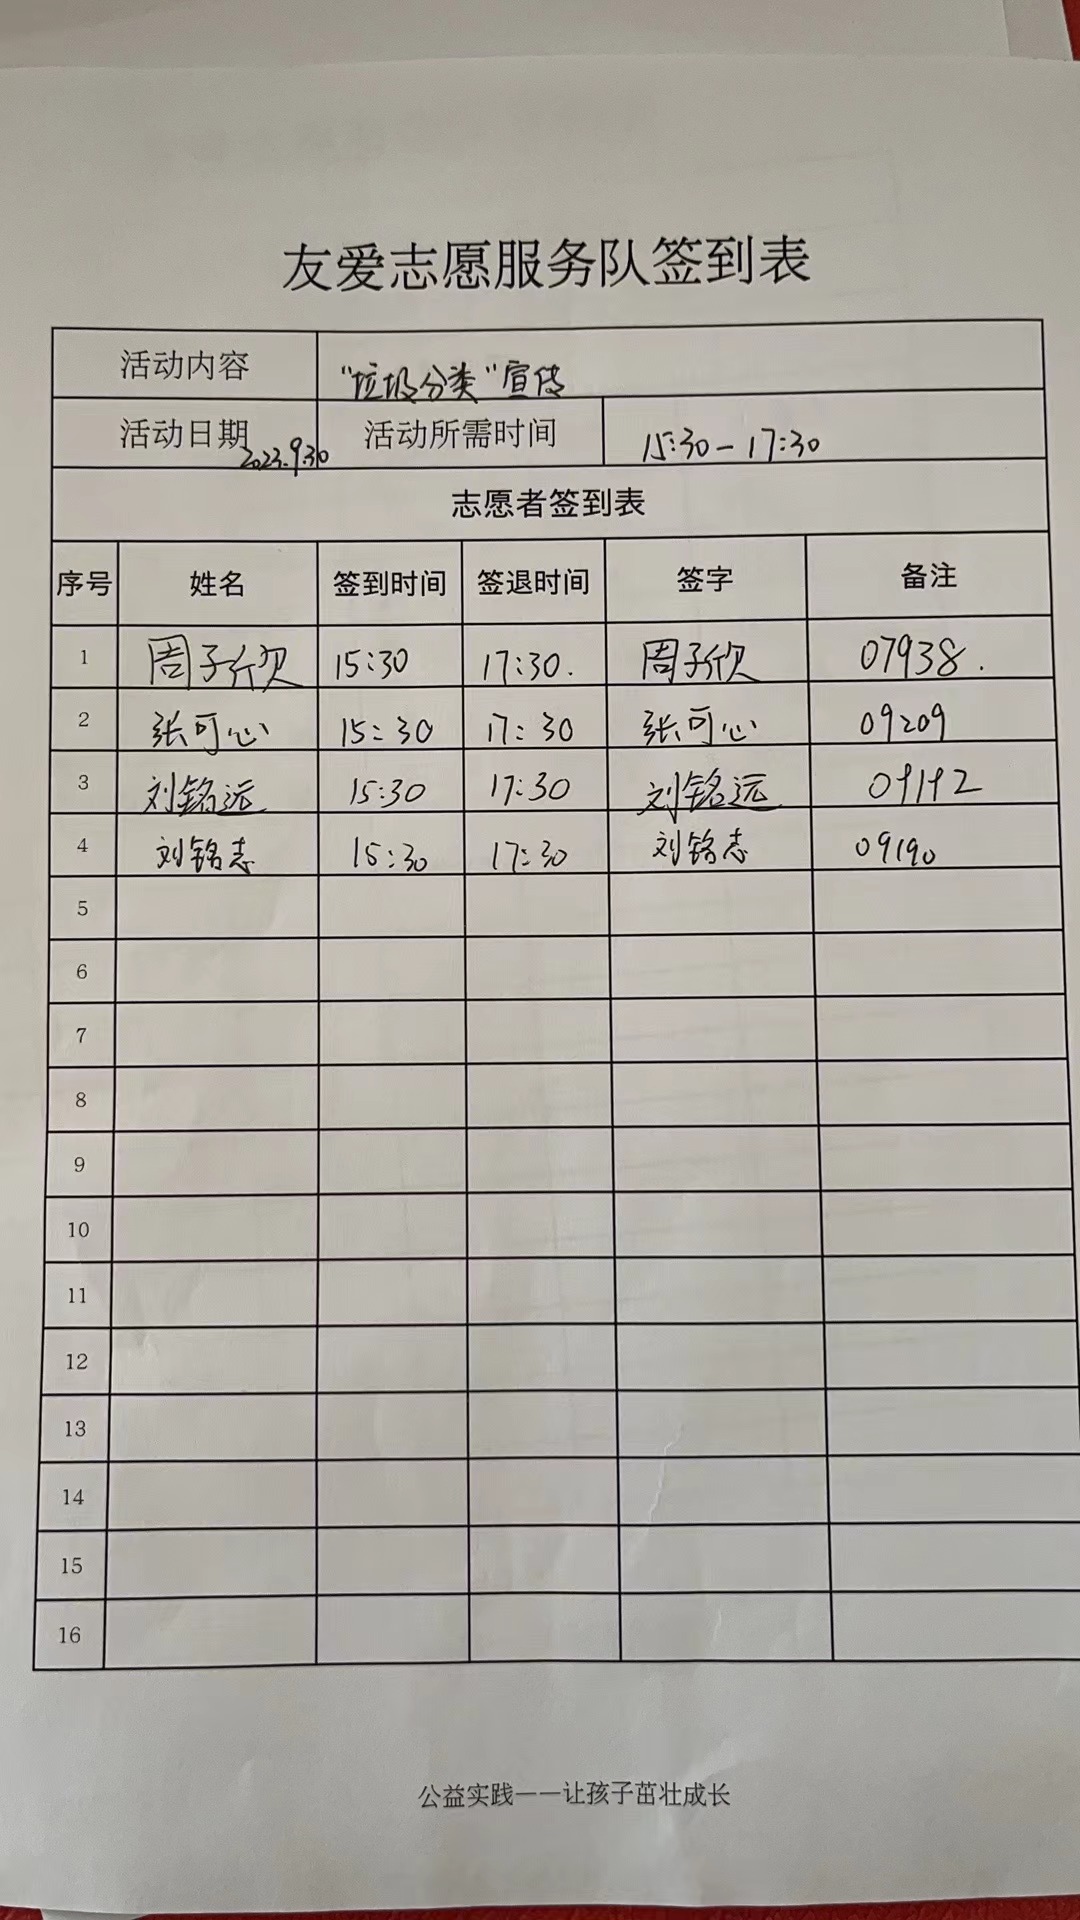 友爱志愿服务队签到表
活动内容 "垃圾分类"宣传
活动日期 2023.9.30 活动所需时间 15:30-17:30
志愿者签到表
序号 姓名 签到时间 签退时间 签字 备注
1 周子欣 15:30 17:30. 周子欣 07938.
2 张可心 15:30 17:30 张可心 09209
3 刘铭远 15:30 17:30 刘铭远 09192
4 刘铭志 15:30 17:30 刘铭志 09190
5
6
7
8
9
10
11
12
13
14
15
16
公益实践——让孩子茁壮成长